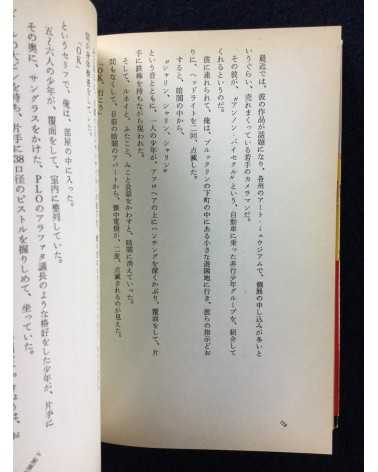 最近では、彼の作品が話題になり、各州のアート・ミュウジアムで、個展の申し込みが多いと
いうぐらい、売れまくっている若手のカメラマンだ。
その彼が、"アンノン・バイセクル"という、自動車に乗った非行少年グループを、紹介して
くれるというのだ。
彼に連れられて、俺は、ブルックリンの下町の中にある小さな遊園地に行き、彼らの指示どお
りに、ヘッドライトを二回、点滅した。
すると、暗闇の中から、
"シャリン、シャリン、シャリン"
という音とともに、一人の少年が、アフロヘアの上にハンチングを深くかぶり、覆面をして、片
手に鉄棒を持ちながら現われた。
そして、ルネとふたこと、みこと言葉をかわすと、暗闇に消えていった。
間もなくして、目前の暗闇のアパートから、懐中電燈が、二度、点滅されるのが見えた。
「OK、行こう」
「OK」
というセリフで、俺は、部屋の中に入った。
五、六人の少年が、覆面をして、室内に整列していた。
その奥に、サングラスをかけた、PLOのアラファタ議長のような格好をした少年が、片手に
を持ち、片手に38口径のピストルを握りしめて、坐っていた。